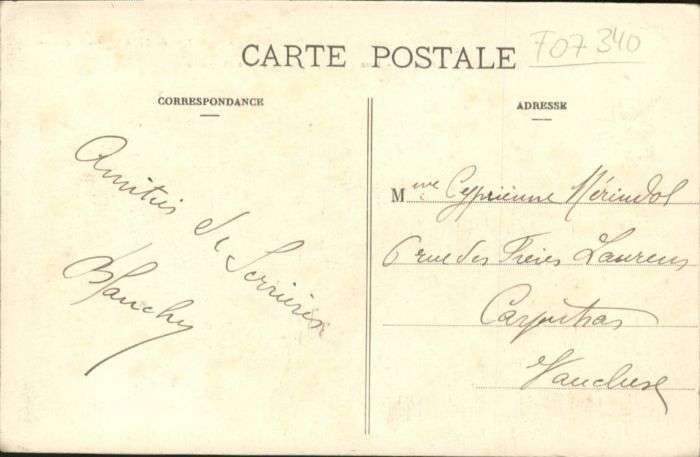 CARTE POSTALE
F07 340
CORRESPONDANCE
ADRESSE
Amitiés de Serrières
Blanchy
Mme Cyprienne Mérindol
6 rue des Frères Laurens
Carpentras
Vaucluse